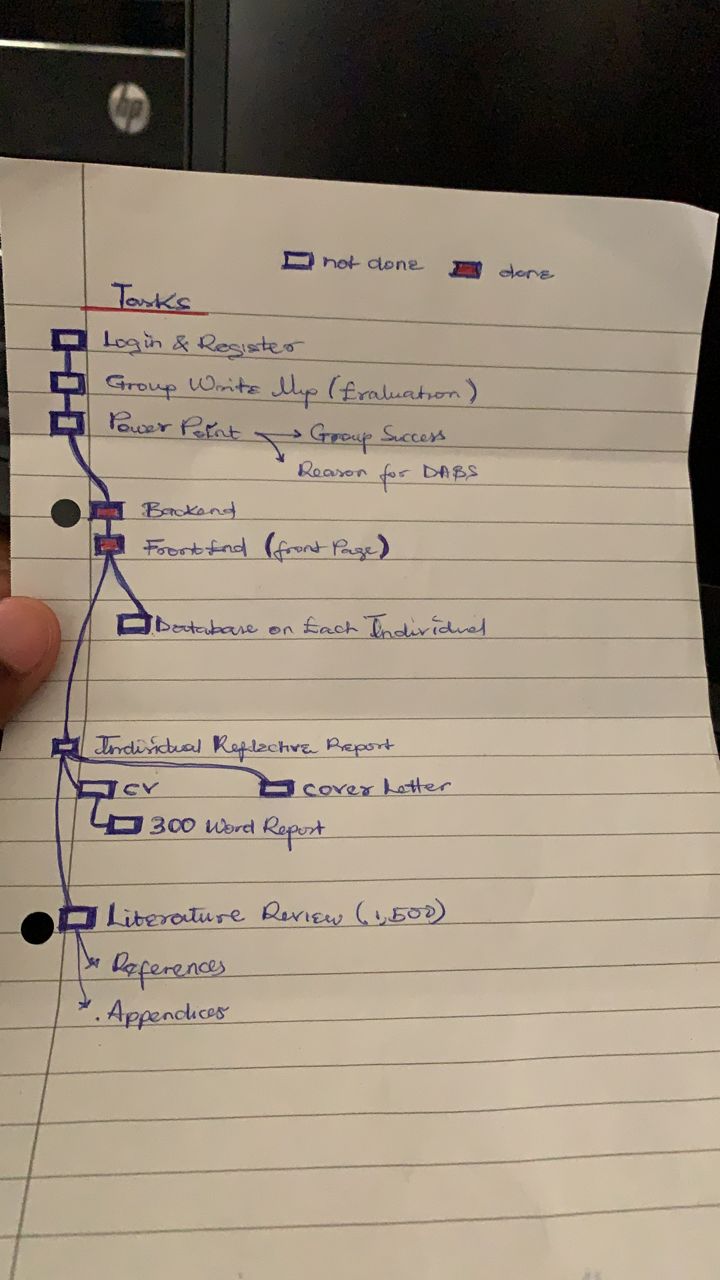 hp
not done done
Tasks
Login & Register
Group Write Up (Evaluation)
Power Point → Group Success
Reason for DABS
Backend
FrontEnd (front Page)
Database on Each Individual
Individual Reflective Report
CV cover Letter
300 Word Report
Literature Review (1,500)
References
. Appendices